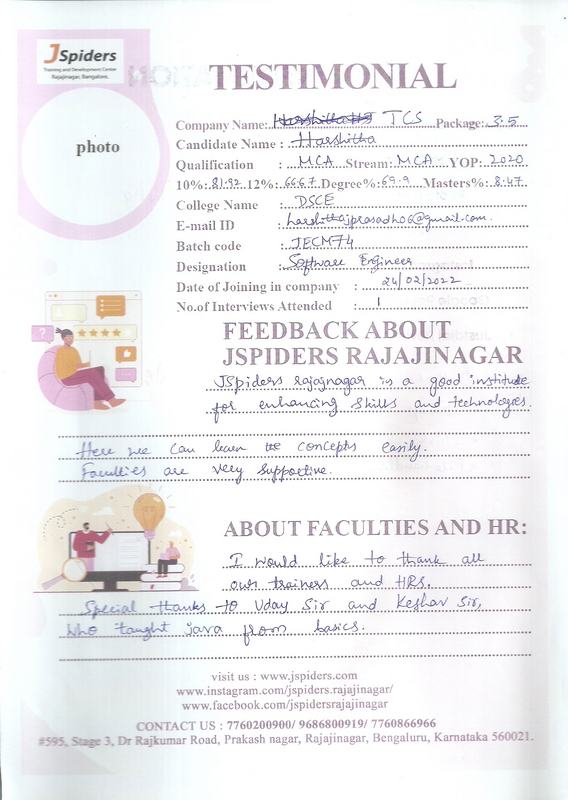 JSpiders
Training and Development Centre
Rajajinagar, Bangalore.
TESTIMONIAL
photo
Company Name: TCS Package: 3.5
Candidate Name : Harshitha
Qualification : MCA Stream: MCA YOP: 2020
10%: 81.92 12%: 66.67 Degree%: 69.9 Masters%: 8.47
College Name : DSCE
E-mail ID : harshitajprasad06@gmail.com.
Batch code : JECM74
Designation : Software Engineer
Date of Joining in company : 24/02/2022
No.of Interviews Attended : 1
FEEDBACK ABOUT
JSPIDERS RAJAJINAGAR
JSpiders rajajnagar is a good institute
for enhancing skills and technologies.
Here we can learn the concepts easily.
Faculties are very supportive.
ABOUT FACULTIES AND HR:
I would like to thank all
our trainers and HRs.
Special thanks to Uday Sir and Keshav Sir,
who taught java from basics.
visit us : www.jspiders.com
www.instagram.com/jspiders.rajajinagar/
www.facebook.com/jspidersrajajinagar
CONTACT US : 7760200900/ 9686800919/ 7760866966
#595, Stage 3, Dr Rajkumar Road, Prakash nagar, Rajajinagar, Bengaluru, Karnataka 560021.